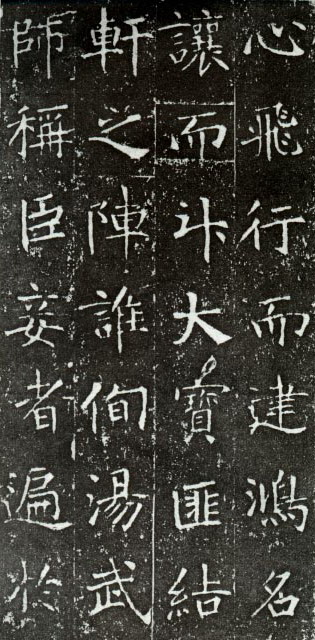 心飛行而建鴻名
讓而升大寶匪結
軒之陣誰侚湯武
師稱臣妾者遍扵